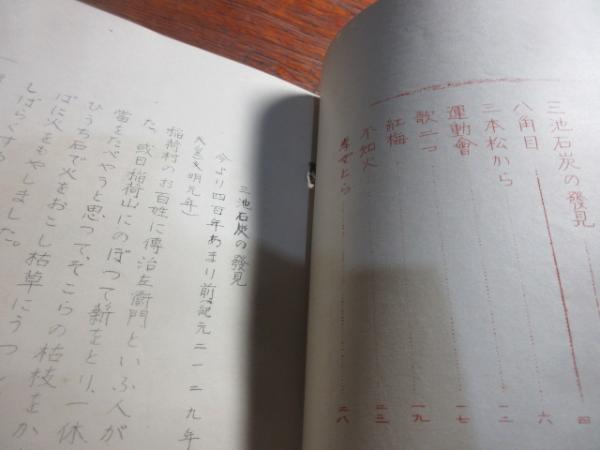 三池石炭の發見 四
八角目 六
三本松から 一二
運動會 一七
歌二つ 一九
紅梅
不知火 二三
二八
三池石炭の發見
今より四百年あまり前(紀元二一二九年
文明元年)
稲荷村のお百姓に傳治左衛門といふ人が
た。或日稲荷山にのぼつて薪をとり、一休
當をたべやうと思つて、そこらの枯枝をか
ひうち石で火をおこし枯草にうつし
ばに火をもやしました。
しばらくする